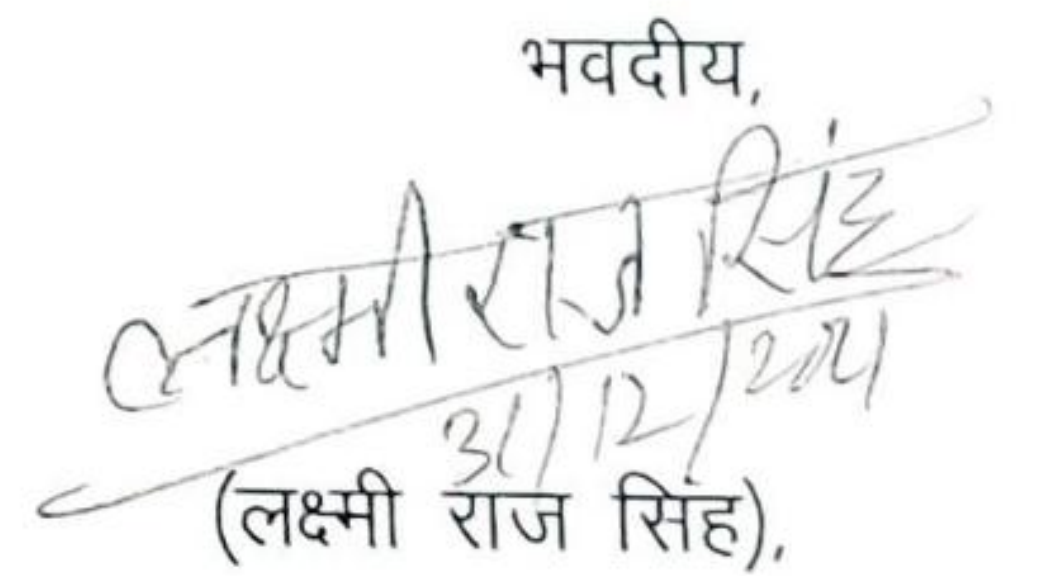 भवदीय,
लक्ष्मी राज सिंह
31/12/2021
(लक्ष्मी राज सिंह),